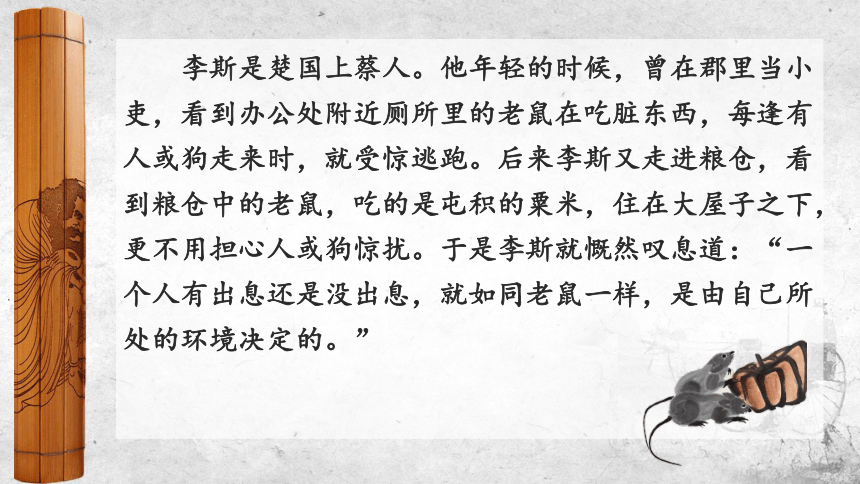 李斯是楚国上蔡人。他年轻的时候，曾在郡里当小
吏，看到办公处附近厕所里的老鼠在吃脏东西，每逢有
人或狗走来时，就受惊逃跑。后来李斯又走进粮仓，看
到粮仓中的老鼠，吃的是屯积的粟米，住在大屋子之下，
更不用担心人或狗惊扰。于是李斯就慨然叹息道：“一
个人有出息还是没出息，就如同老鼠一样，是由自己所
处的环境决定的。”